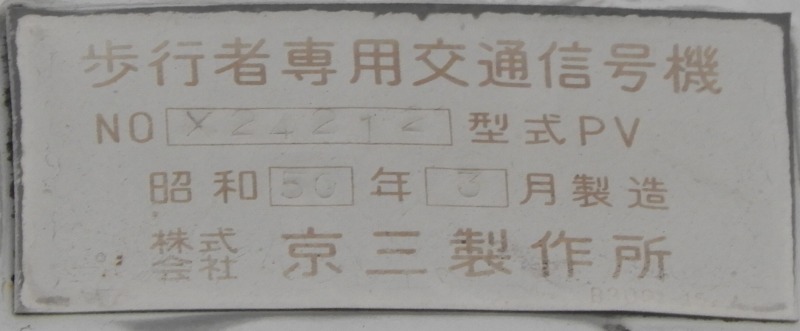 歩行者専用交通信号機
NO X24212 型式PV
昭和50年3月製造
株式会社 京三製作所